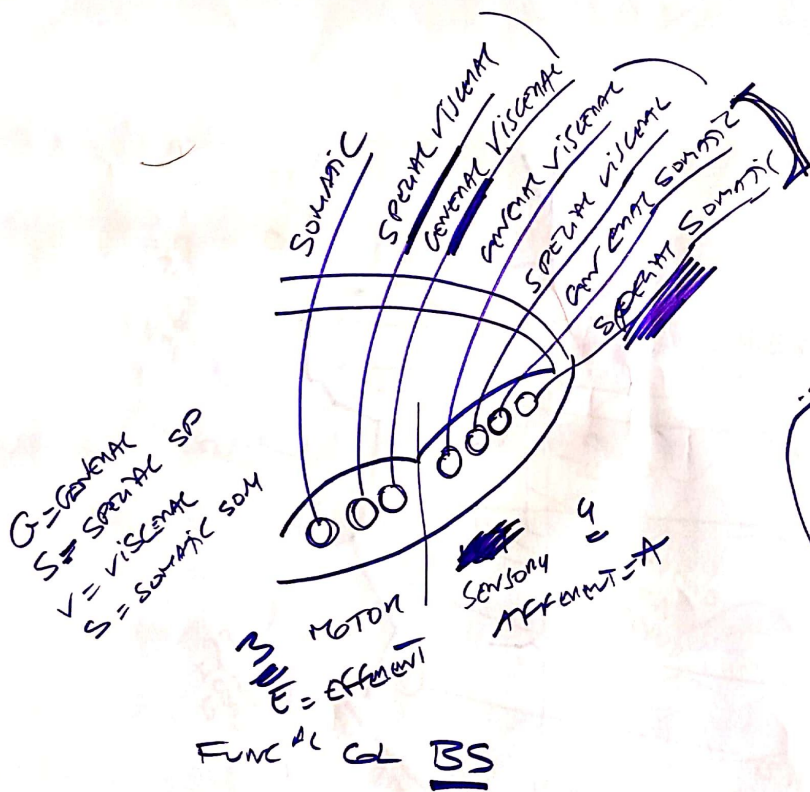 SOMATIC
SPECIAL VISCERAL
GENERAL VISCERAL
GENERAL VISCERAL
SPECIAL VISCERAL
GENERAL SOMATIC
SPECIAL SOMATIC
G = GENERAL
S = SPECIAL SP
V = VISCERAL
S = SOMATIC SOM
3 MOTOR
E = EFFERENT
SENSORY 4
AFFERENT = A
FUNCAL COL BS